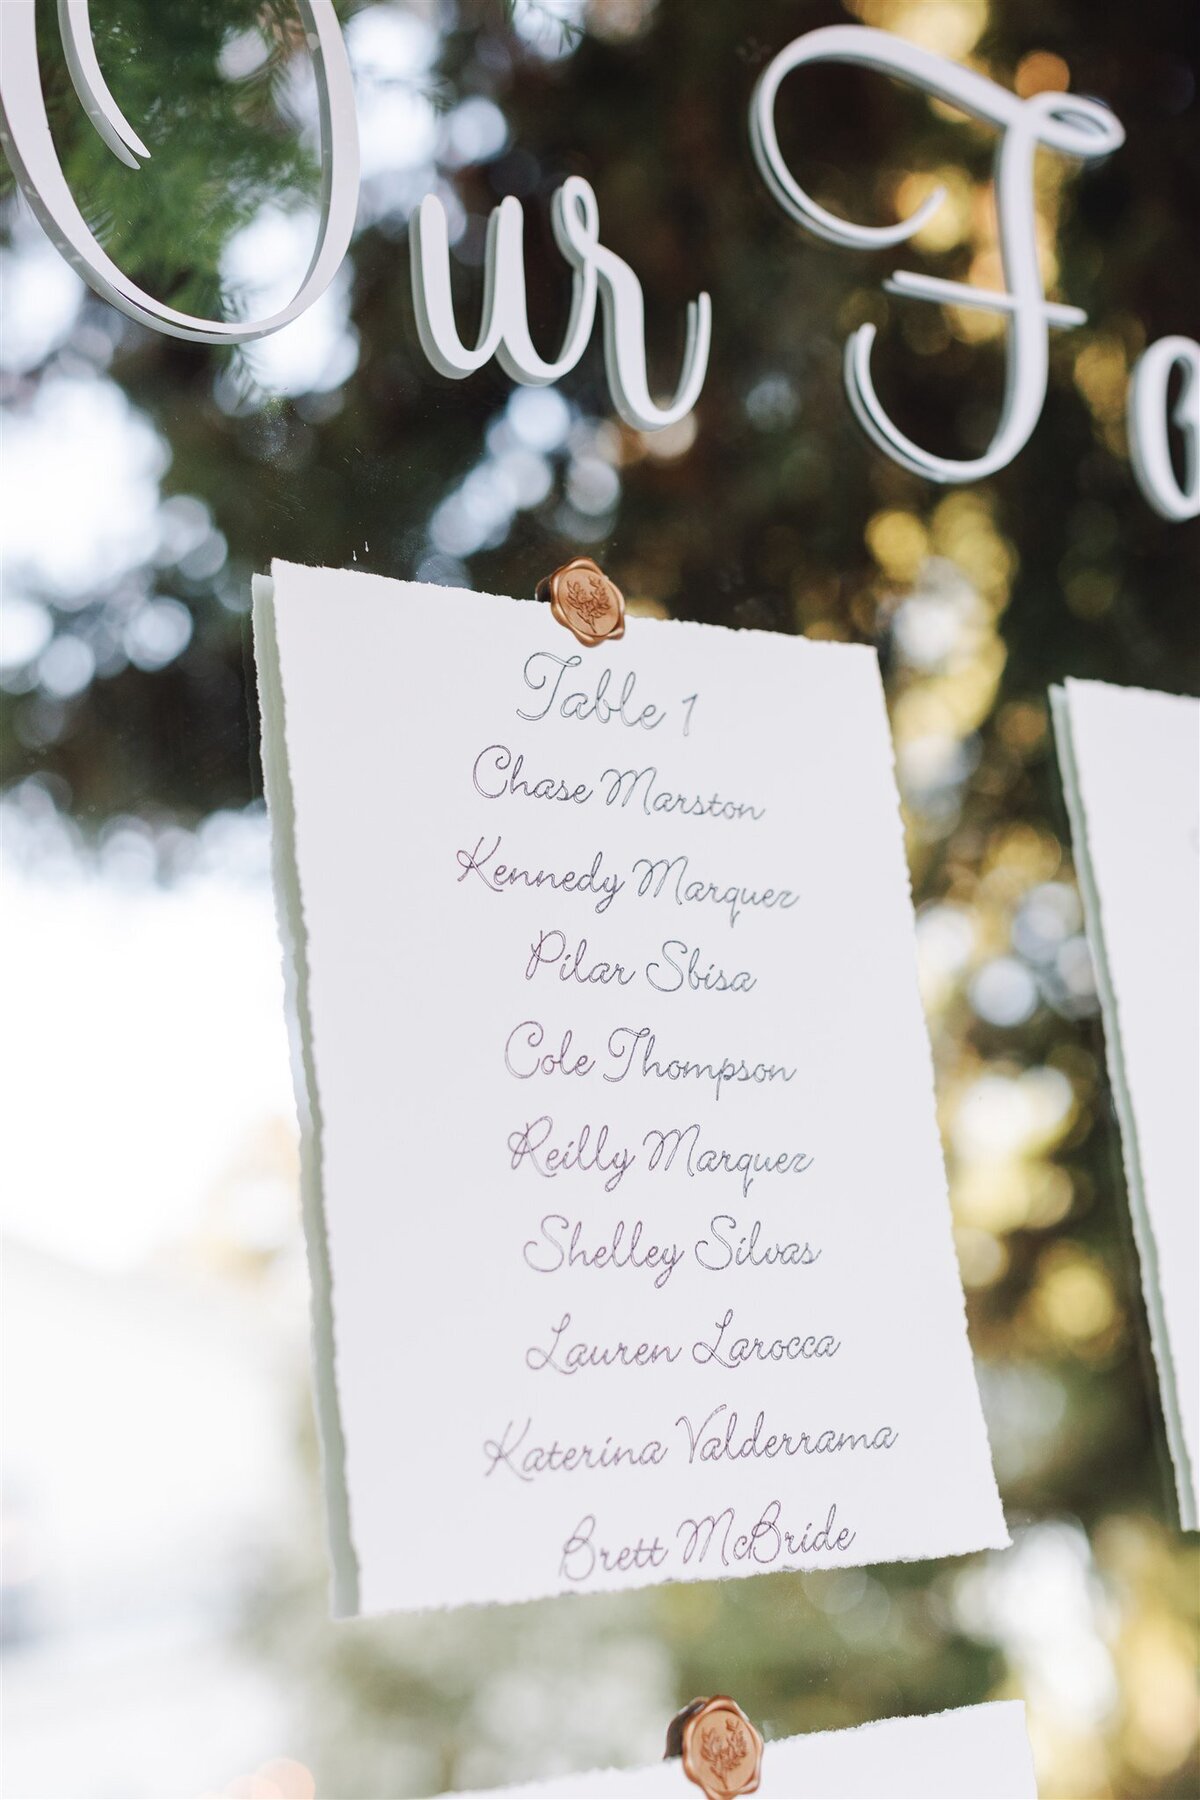 Our Fo
Table 1
Chase Marston
Kennedy Marquez
Pilar Sbisa
Cole Thompson
Reilly Marquez
Shelley Silvas
Lauren Larocca
Katerina Valderrama
Brett McBride